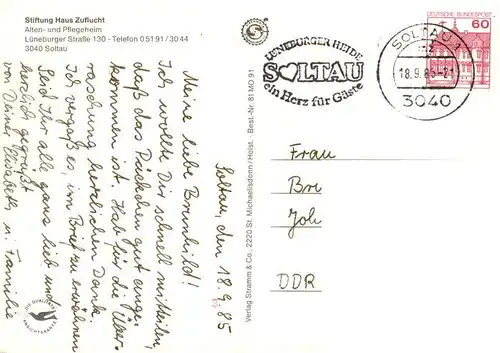 Stiftung Haus Zuflucht
Alten- und Pflegeheim
Lüneburger Straße 130 - Telefon 0 51 91 / 30 44
3040 Soltau
Soltau, den 18.9.85
Meine liebe Brunhild!
Ich wollte Dir schnell mitteilen,
daß das Päckchen gut ange-
kommen ist. Hab für die Über-
raschung herzlichen Dank.
Ich vergaß es, im Brief zu erwähnen
Seid Ihr alle ganz lieb und
herzlich gegrüßt
von Deiner Elisabeth u. Familie
DIE QUALITÄTS
ANSICHTSKARTE
Verlag Stramm & Co., 2220 St. Michaelisdonn/Holst. - Best.-Nr. 81 MO 91
LÜNEBURGER HEIDE
SOLTAU
ein Herz für Gäste
SOLTAU 1
mz
18.9.85-21
3040
DEUTSCHE BUNDESPOST
60
Frau
Bre
Joh
DDR